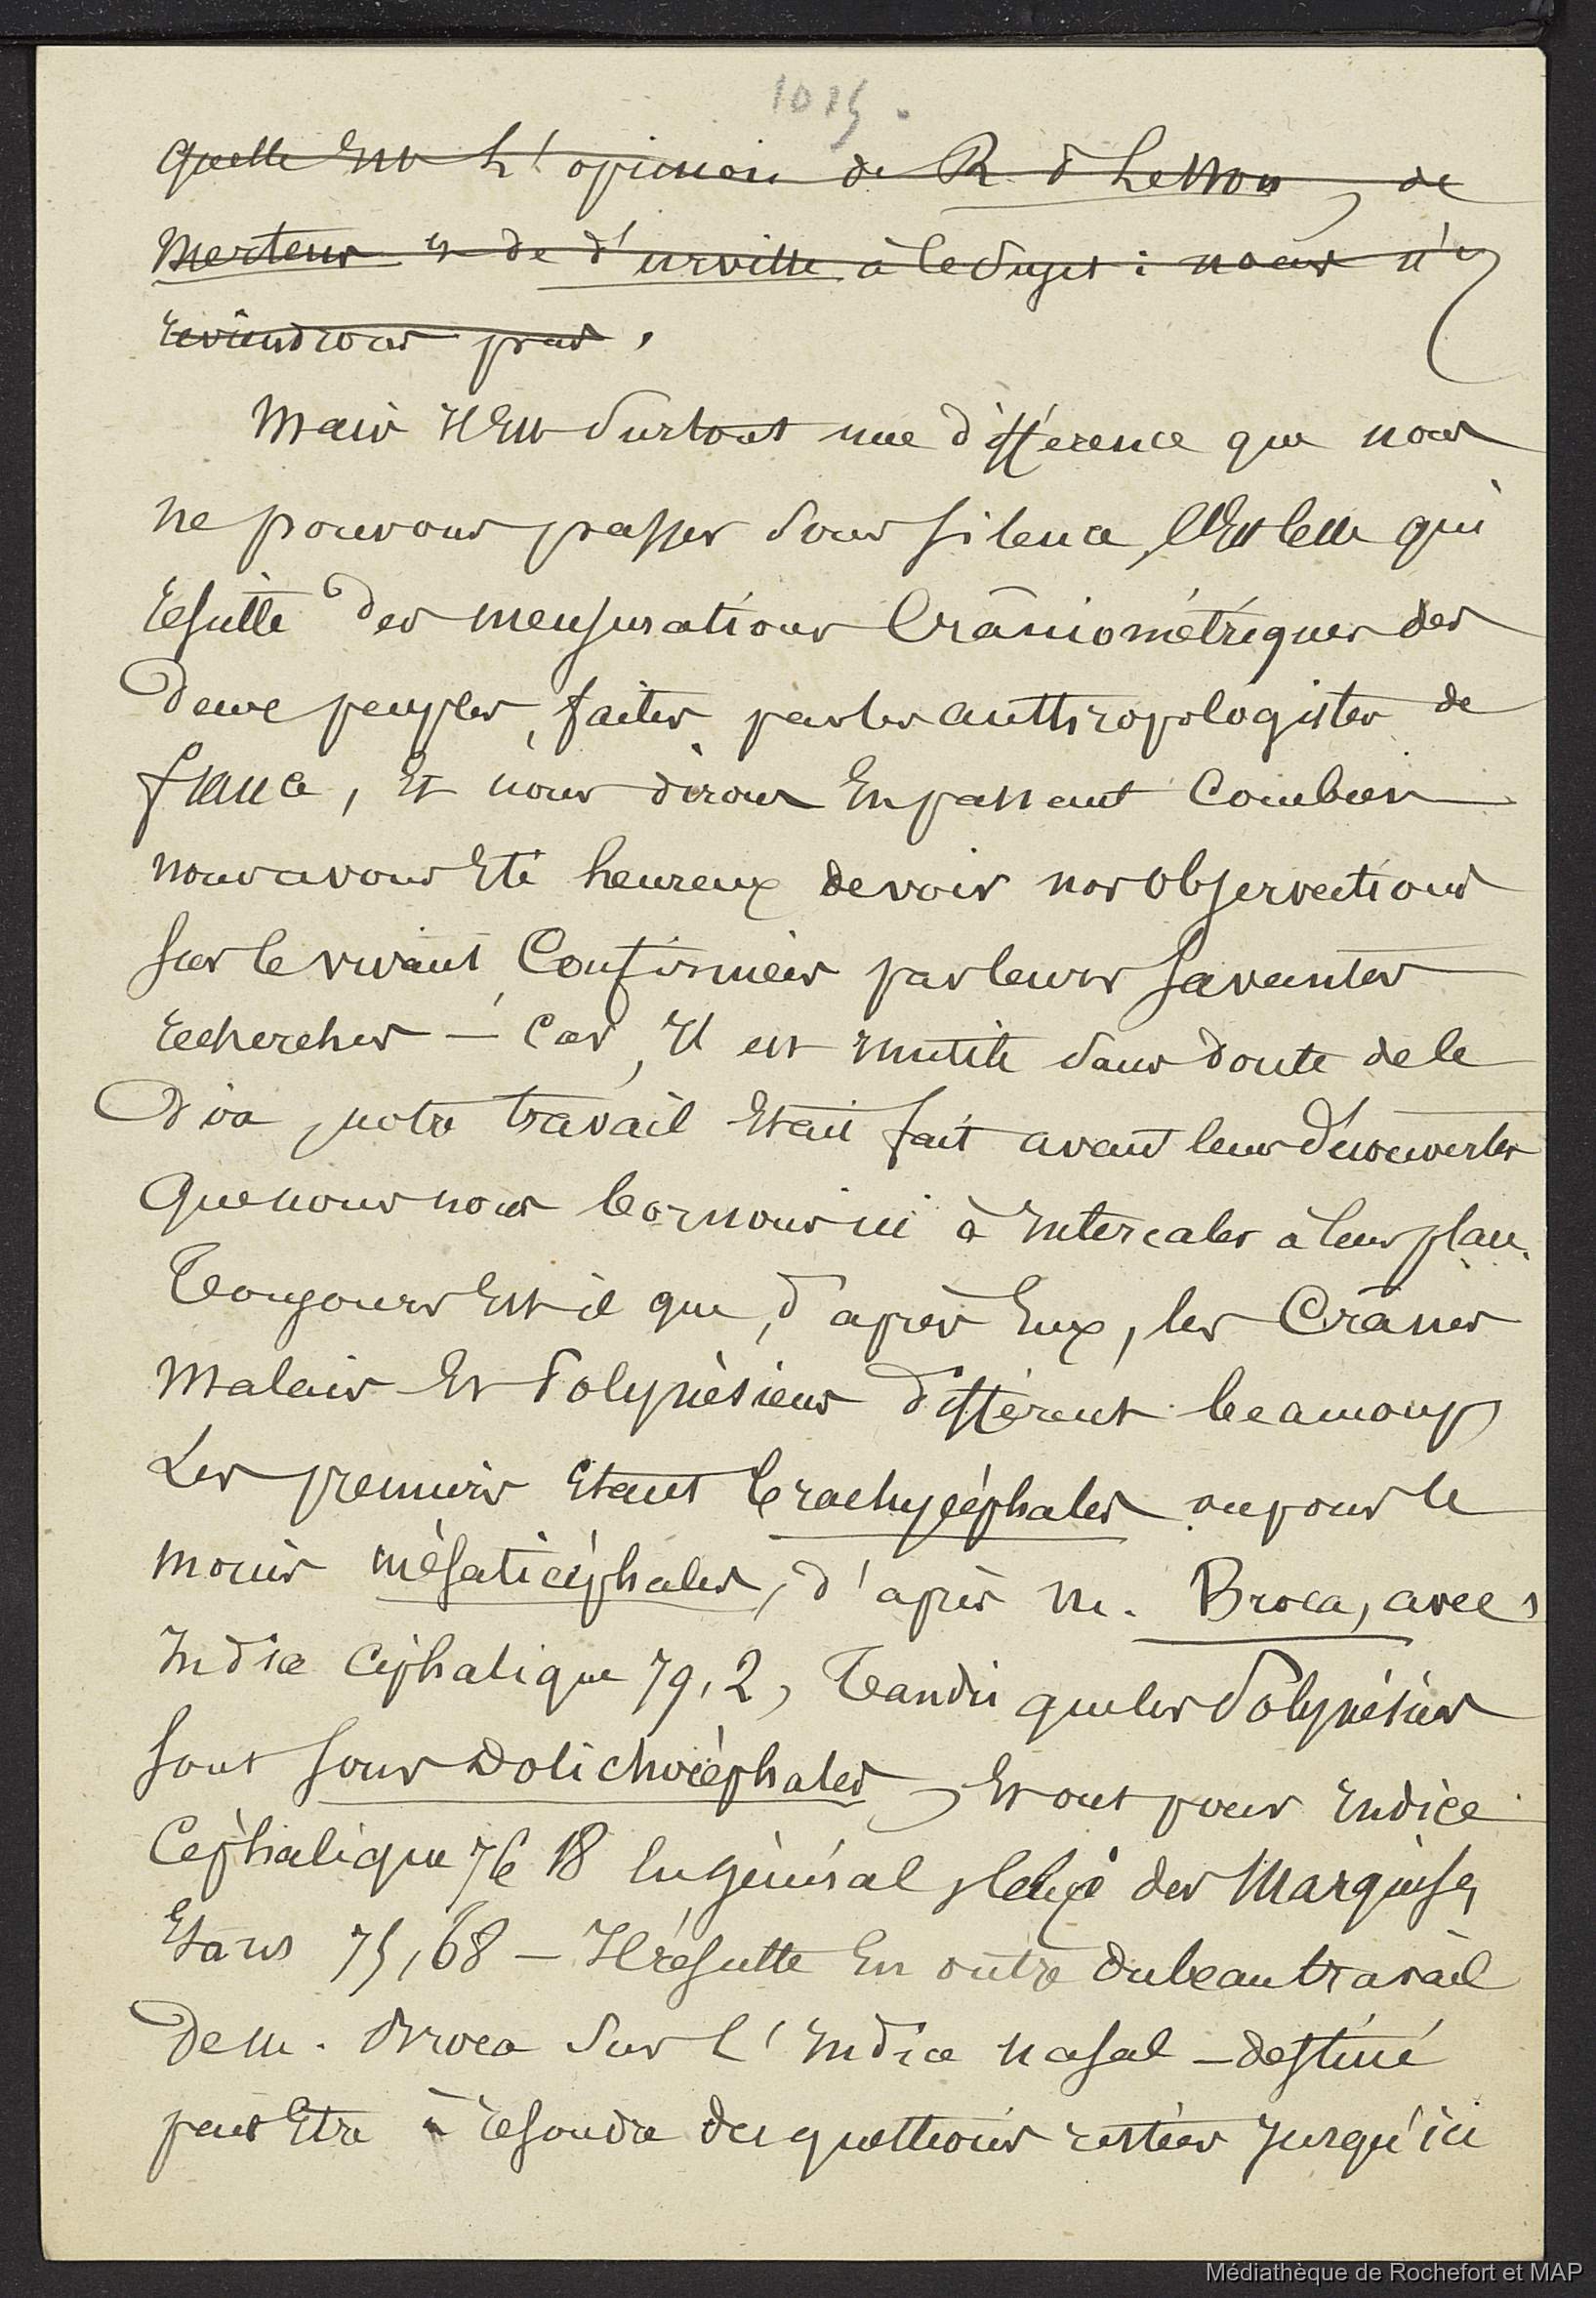 1015.
quelle est l'opinion de R. P. Lesson, de
Mertens et de d'urville à ce sujet : nous n'y
reviendrons pas.
Mais il est surtout une différence que nous
ne pouvons passer sous silence, c'est celle qui
résulte des mensurations crâniométriques des
deux peuples, faites par les anthropologistes de
france, et nous dirons en passant combien
nous avons été heureux de voir nos observations
sur le vivant, confirmées par leurs savantes
recherches — car, il est inutile sans doute de le
dire, notre travail était fait avant leurs découvertes
que nous nous bornons ici à intercaler à leur place.
Toujours est-il que, d'après eux, les crânes
malais et Polynésiens diffèrent beaucoup
Les premiers étant brachycéphales ou pour le
moins mésaticéphales, d'après M. Broca, avec 1
indice céphalique 79,2, tandis que les Polynésiens
sont sous dolichocéphales, et ont pour indice
céphalique 76 18 en général, celui des Marquises
étans 75,68 — Il résulte en outre du beau travail
de M. Broca sur l'indice nasal — destiné
peut être à résoudre des questions restées jusqu'ici
Médiathèque de Rochefort et MAP